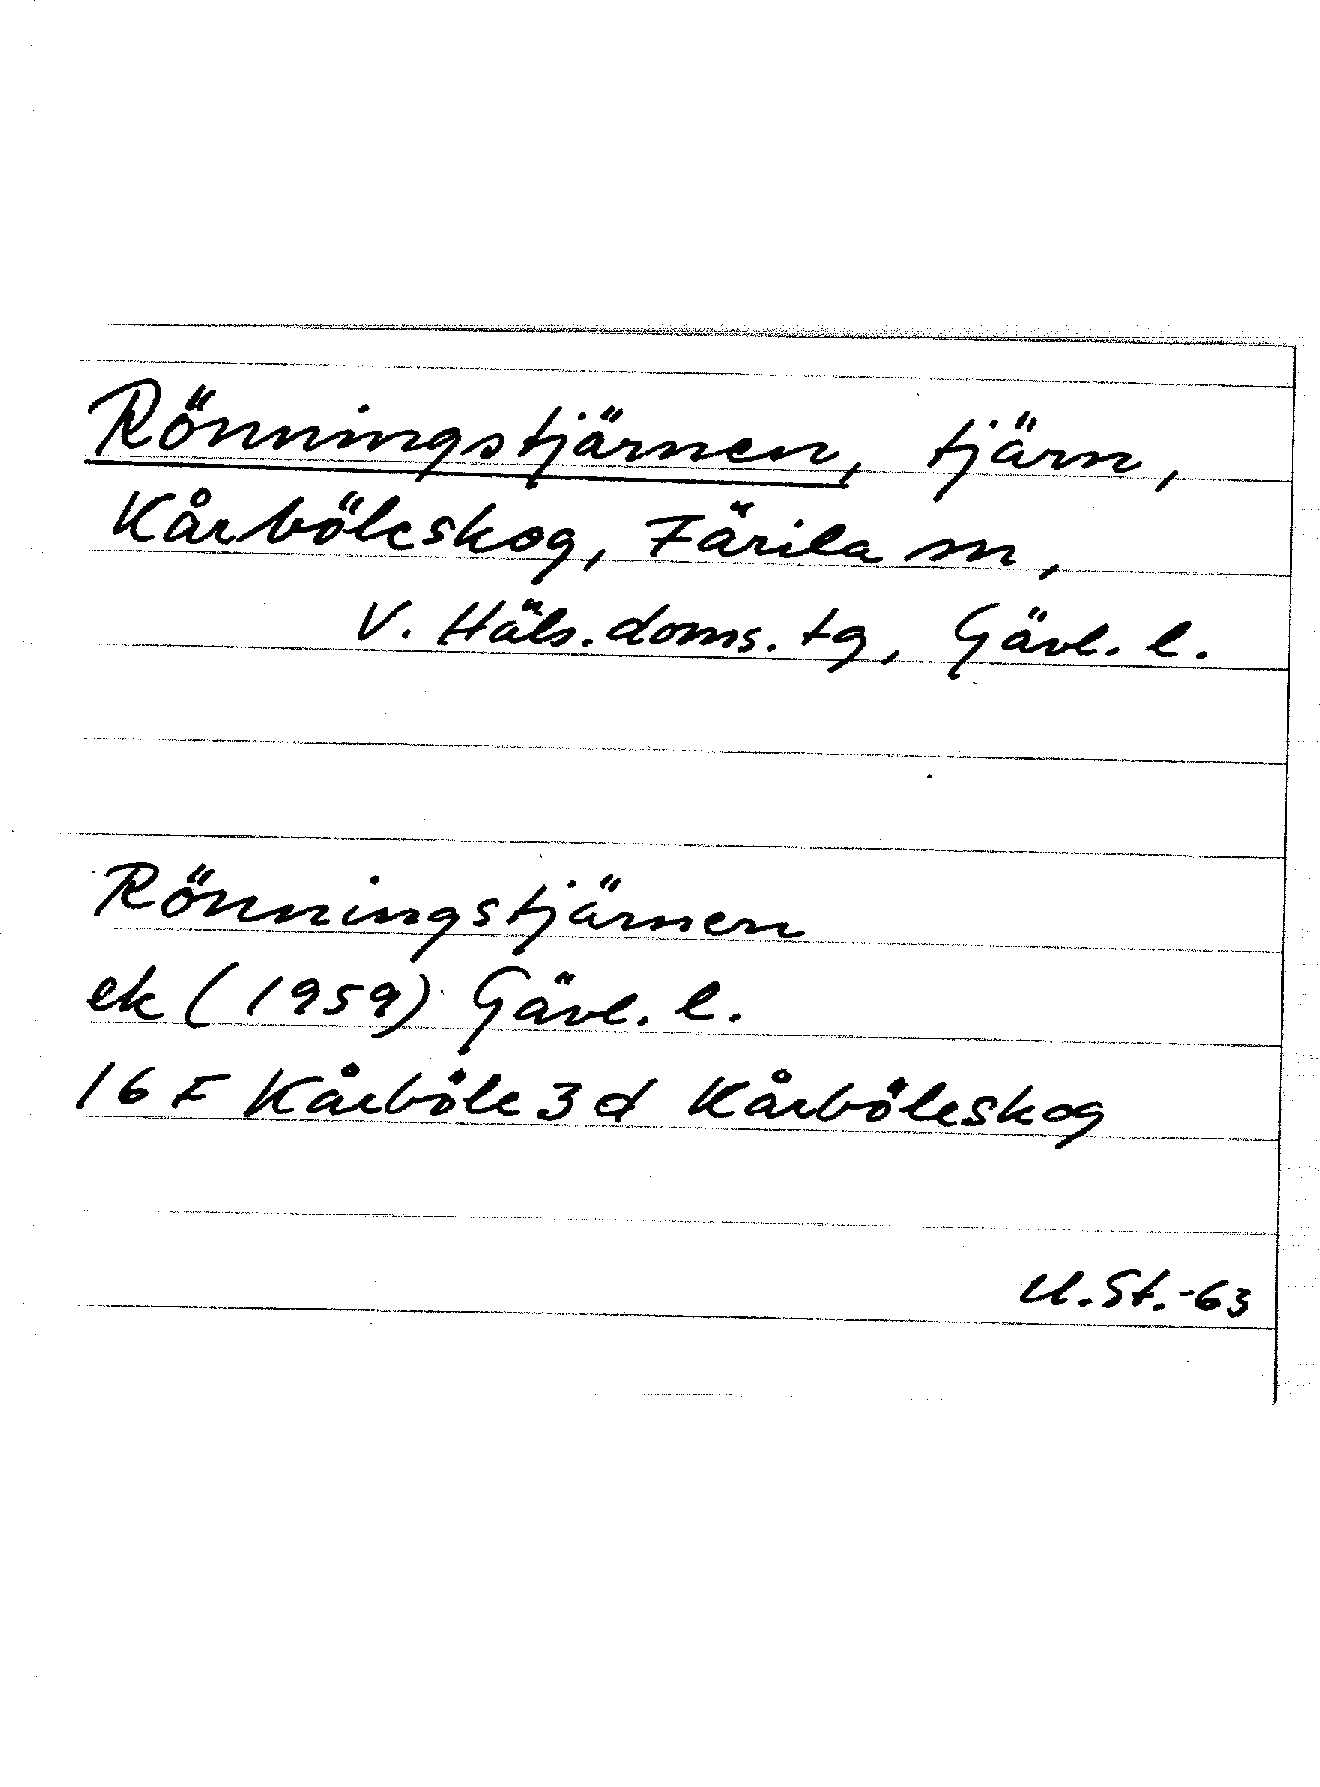 Rönningstjärnen, tjärn,
Kårböleskog, Färila sn,
V. Häls. doms. tg, Gävl. l.
Rönningstjärnen
ek (1959) Gävl. l.
16 F Kårböle 3 d Kårböleskog
U. St. -63